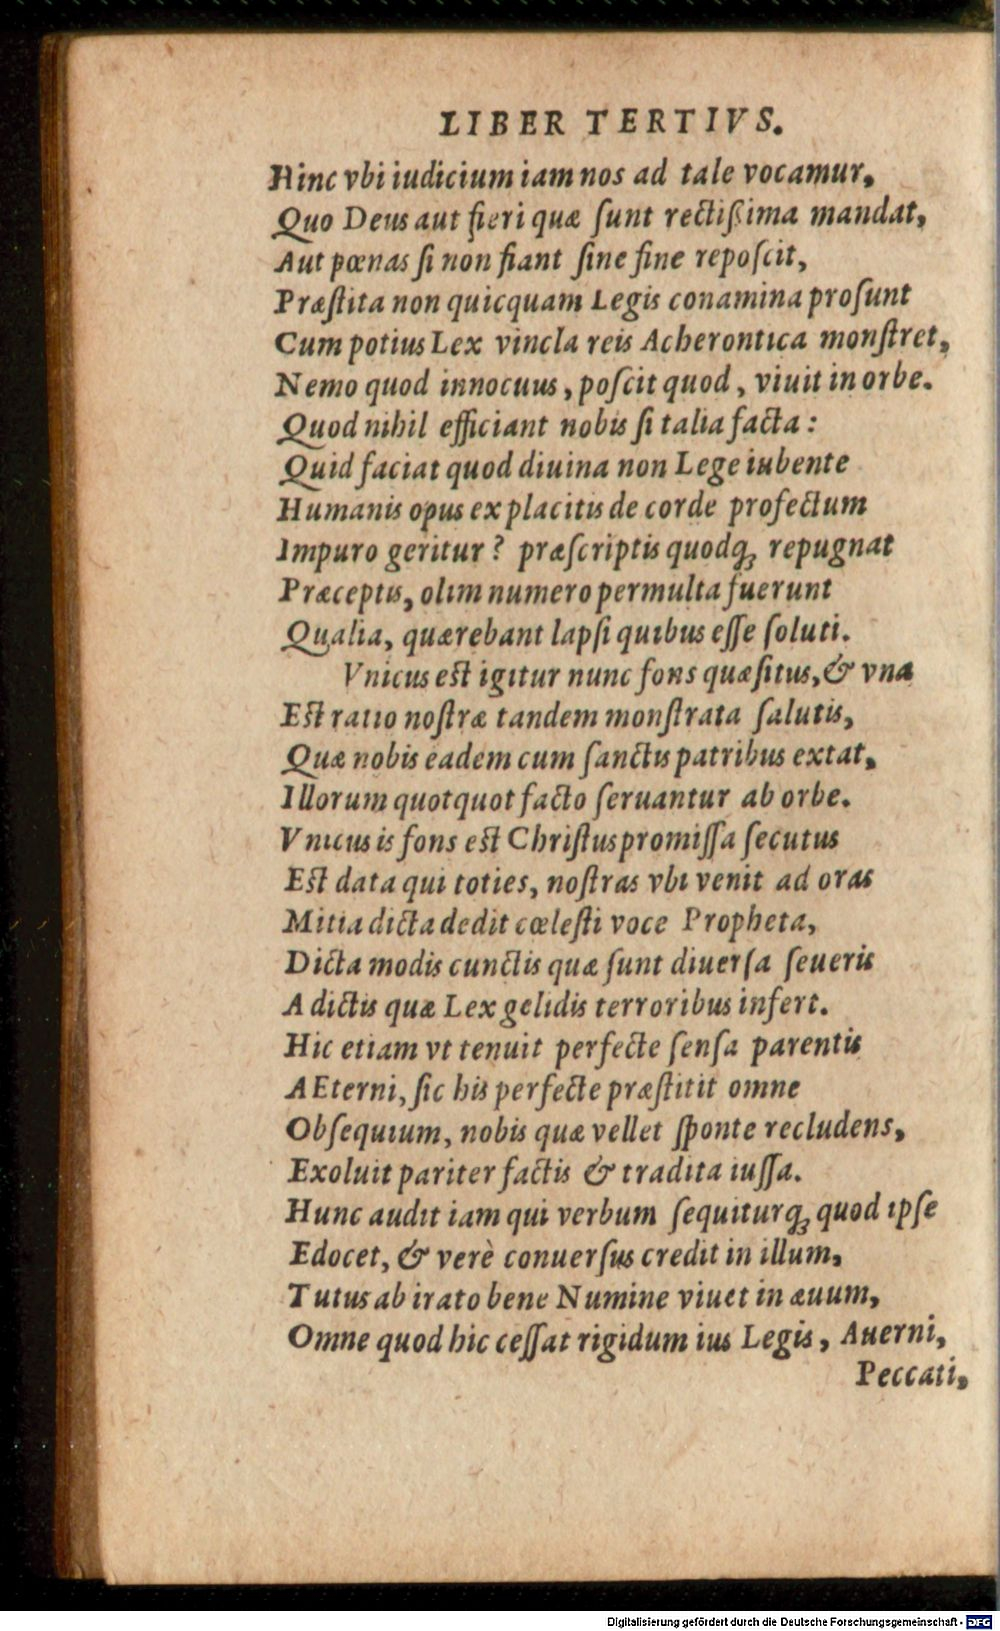 LIBER TERTIVS.
Hinc vbi iudicium iam nos ad tale vocamur,
Quo Deus aut fieri quæ ſunt rectiſsima mandat,
Aut pœnas ſi non fiant ſine fine repoſcit,
Præſtita non quicquam Legis conamina proſunt
Cum potius Lex vincla reis Acherontica monſtret,
Nemo quod innocuus, poſcit quod, viuit in orbe.
Quod nihil efficiant nobis ſi talia facta:
Quid faciat quod diuina non Lege iubente
Humanis opus ex placitis de corde profectum
Impuro geritur? præſcriptis quodq; repugnat
Præceptis, olim numero permulta fuerunt
Qualia, quærebant lapſi quibus eſſe ſoluti.
Vnicus eſt igitur nunc fons quæſitus, & vna
Eſt ratio noſtræ tandem monſtrata ſalutis,
Quæ nobis eadem cum ſanctis patribus extat,
Illorum quotquot facto ſeruantur ab orbe.
Vnicus is fons eſt Chriſtus promiſſa ſecutus
Eſt data qui toties, noſtras vbi venit ad oras
Mitia dicta dedit cœleſti voce Propheta,
Dicta modis cunctis quæ ſunt diuerſa ſeueris
A dictis quæ Lex gelidis terroribus infert.
Hic etiam vt tenuit perfecte ſenſa parentis
AEterni, ſic his perfecte præſtitit omne
Obſequium, nobis quæ vellet ſponte recludens,
Exoluit pariter factis & tradita iuſſa.
Hunc audit iam qui verbum ſequiturq; quod ipſe
Edocet, & verè conuerſus credit in illum,
Tutus ab irato bene Numine viuet in æuum,
Omne quod hic ceſſat rigidum ius Legis, Auerni,
Peccati,
Digitalisierung gefördert durch die Deutsche Forschungsgemeinschaft - DFG